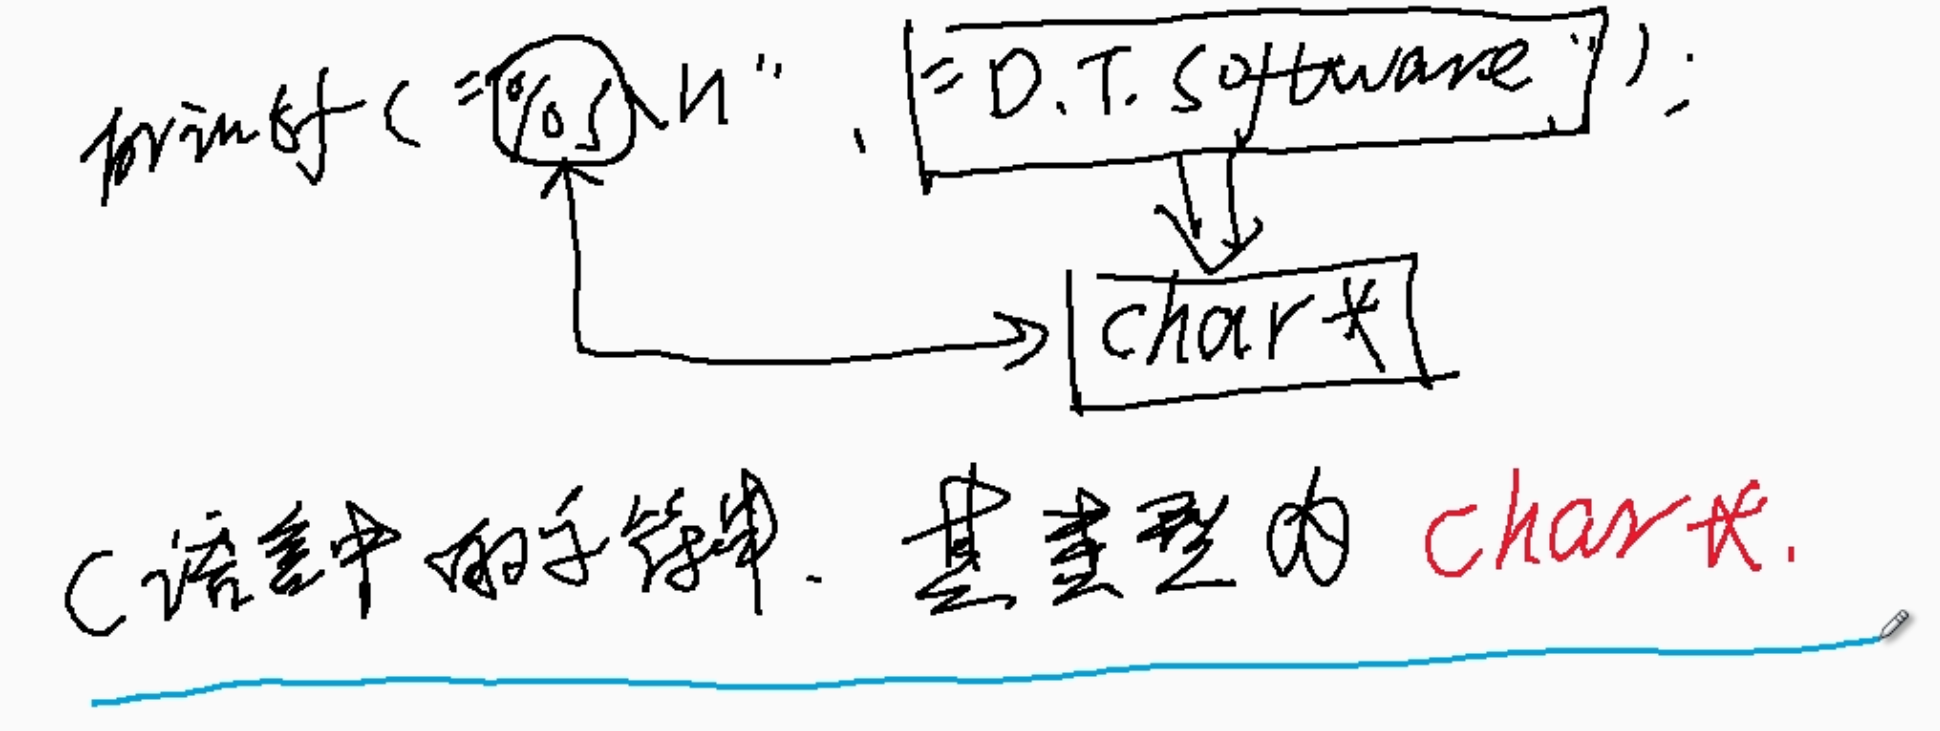 printf("%s\n", "D.T.Software");
char*
C语言中的字符串. 其类型为 char*.